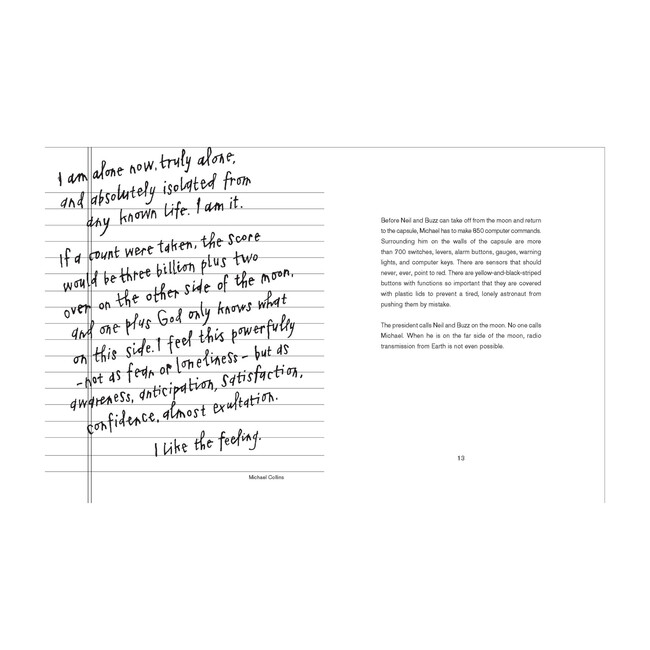 I am alone now, truly alone,
and absolutely isolated from
any known life. I am it.
If a count were taken, the score
would be three billion plus two
over on the other side of the moon,
and one plus God only knows what
on this side. I feel this powerfully
-not as fear or loneliness - but as
awareness, anticipation, satisfaction,
confidence, almost exultation.
I like the feeling.
Michael Collins
Before Neil and Buzz can take off from the moon and return
to the capsule, Michael has to make 850 computer commands.
Surrounding him on the walls of the capsule are more
than 700 switches, levers, alarm buttons, gauges, warning
lights, and computer keys. There are sensors that should
never, ever, point to red. There are yellow-and-black-striped
buttons with functions so important that they are covered
with plastic lids to prevent a tired, lonely astronaut from
pushing them by mistake.
The president calls Neil and Buzz on the moon. No one calls
Michael. When he is on the far side of the moon, radio
transmission from Earth is not even possible.
13